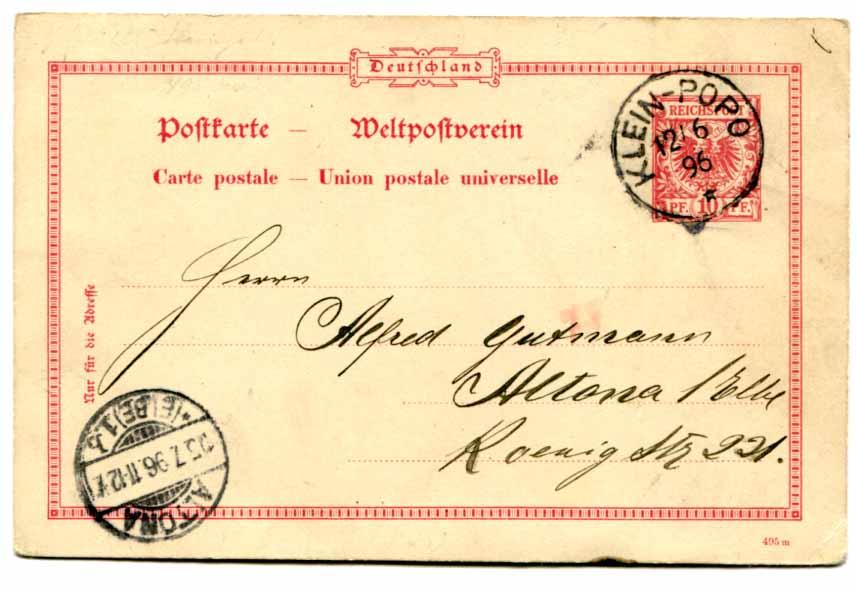 Deutschland
Postkarte — Weltpostverein
Carte postale — Union postale universelle
KLEIN-POPO
12/6
96
REICHSPOST
PF. 10 PF.
Nur für die Adresse
Herrn
Alfred Gutmann
Altona /Elbe
Koenig Str 221.
ALTONA
7.96.11-12V.
*(ELBE)1.b
495 m